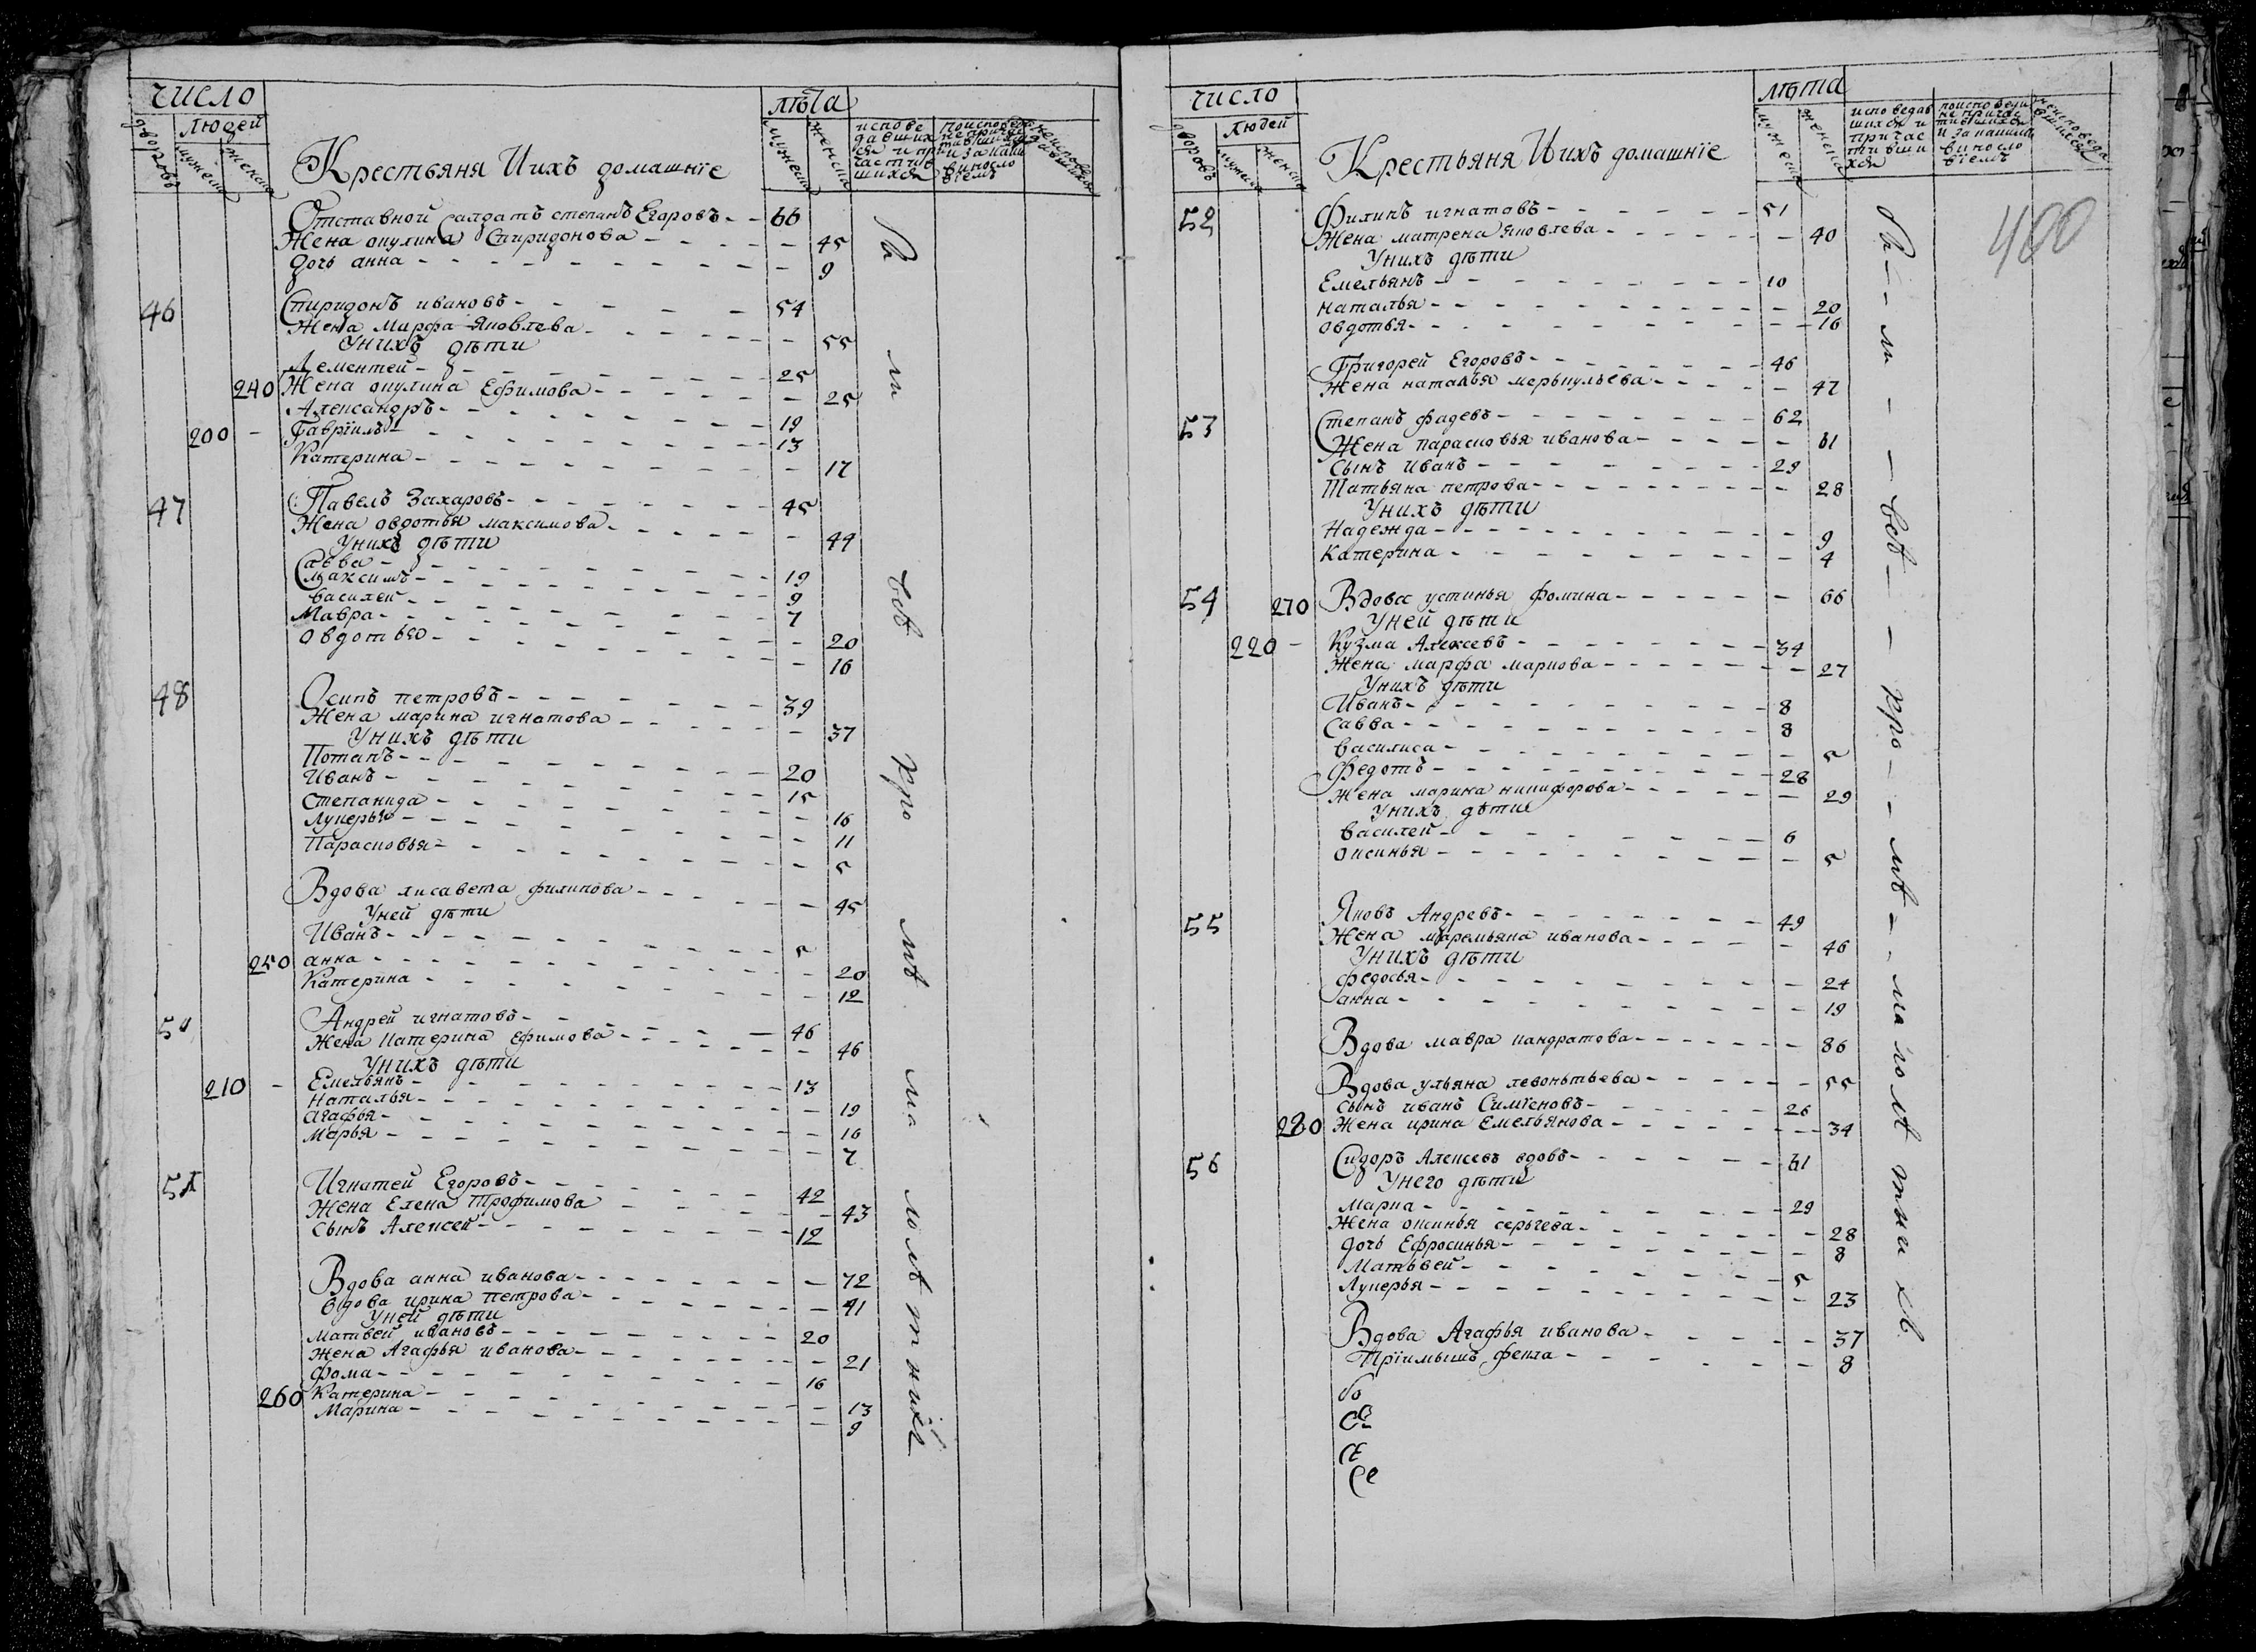 число
людей
дворовъ
мужеска
женска
Крестьяня Ихъ домашнїе
лѣта
мужеска
женска
испове
давших
ся и при
частив
шихся
Отставной Салдатъ степанъ Егаровъ - - 66
Жена окулина Спиридонова - - - 45
дочь анна - - - 9
46 Спиридонъ ивановъ - - - 54
Жена Марфа Яковлева - - - 55
Унихъ дѣти
Лементей - - - 25
240 Жена окулина Ефимова - - - 25
Александръ - - - 19
200 - Гаврїилъ - - - 13
Катерина - - - 17
47 Павелъ Захаровъ - - - 45
Жена овдотья максимова - - - 44
Унихъ дѣти
Савва - - - 19
Максимъ - - - 9
василей - - - 7
Мавра - - - 20
Овдотья - - - 16
48 Осипъ петровъ - - - 39
Жена марина игнатова - - - 37
Унихъ дѣти
Потапъ - - - 20
Иванъ - - - 15
Степанида - - - 16
Лукерья - - - 11
Парасковья - - - 5
Вдова лисавета филипова - - - 45
Уней дѣти
Иванъ - - - 5
250 анна - - - 20
Катерина - - - 12
Андрей игнатовъ - - - 46
Жена катерина Ефимова - - - 46
Унихъ дѣти
210 - Емельянъ - - - 13
Наталья - - - 19
агафья - - - 16
Марья - - - 7
51 Игнатей Егоровъ - - - 42
Жена Елена Трофимова - - - 43
Сынъ Алексей - - - 12
Вдова анна иванова - - - 72
вдова ирина петрова - - - 41
Уней дѣти
матвей ивановъ - - - 20
жена Агафья иванова - - - 21
Фома - - - 16
260 Катерина - - - 13
Марина - - - 9
число
людей
дворовъ
мужеска
женска
Крестьяня Ихъ домашнїе
лѣта
мужеска
женска
исповедав
шихся и
причас
тивши
хся
400
52 Филипъ игнатовъ - - - 51
Жена матрена яковлева - - - 40
Унихъ дѣти
Емельянъ - - - 10
наталья - - - 20
овдотья - - - 16
Григорей Егоровъ - - - 46
Жена наталья меркульева - - - 47
53 Степанъ фадевъ - - - 62
Жена парасковья иванова - - - 61
Сынъ иванъ - - - 29
Татьяна петрова - - - 28
Унихъ дѣти
Надежда - - - 9
Катерина - - - 4
54 270 Вдова устинья фомина - - - 66
Уней дѣти
220 - Кузма Алексевъ - - - 34
Жена марфа маркова - - - 27
Унихъ дѣти
Иванъ - - - 8
Савва - - - 8
василиса - - - 5
Федотъ - - - 28
жена марина никифорова - - - 29
Унихъ дѣти
василей - - - 6
оксинья - - - 5
55 Яковъ Андревъ - - - 49
Жена маремьяна иванова - - - 46
Унихъ дѣти
федосья - - - 24
анна - - - 19
Вдова мавра кандратова - - - 86
Вдова ульяна левонтьева - - - 55
сынъ иванъ Симїеновъ - - - 26
280 Жена ирина Емельянова - - - 34
56 Сидоръ Алексевъ вдовъ - - - 61
Унего дѣти
Марка - - - 29
Жена оксинья серьгева - - - 28
дочь Ефросинья - - - 8
Матьвей - - - 5
Лукерья - - - 23
Вдова Агафья иванова - - - 37
Прїимышъ фекла - - - 8